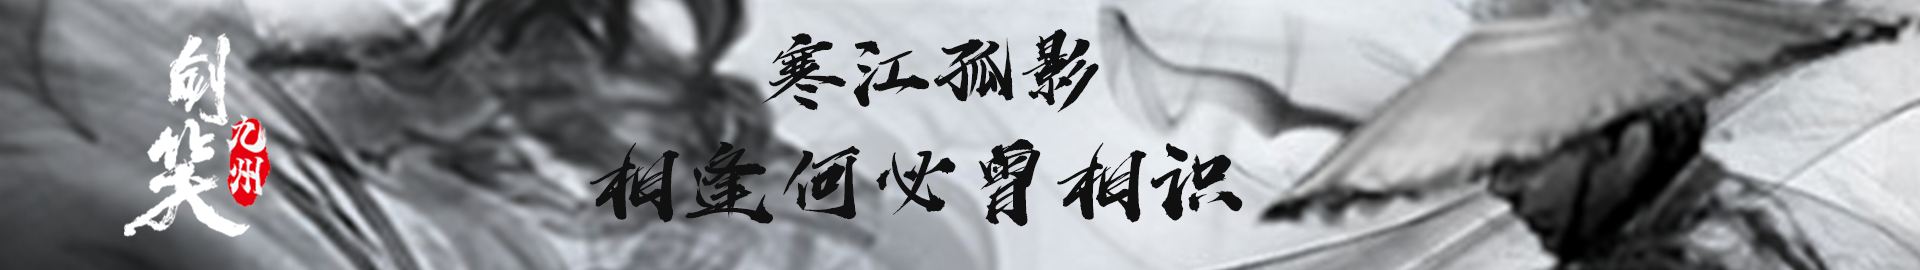 剑笑
九州
寒江孤影
相逢何必曾相识